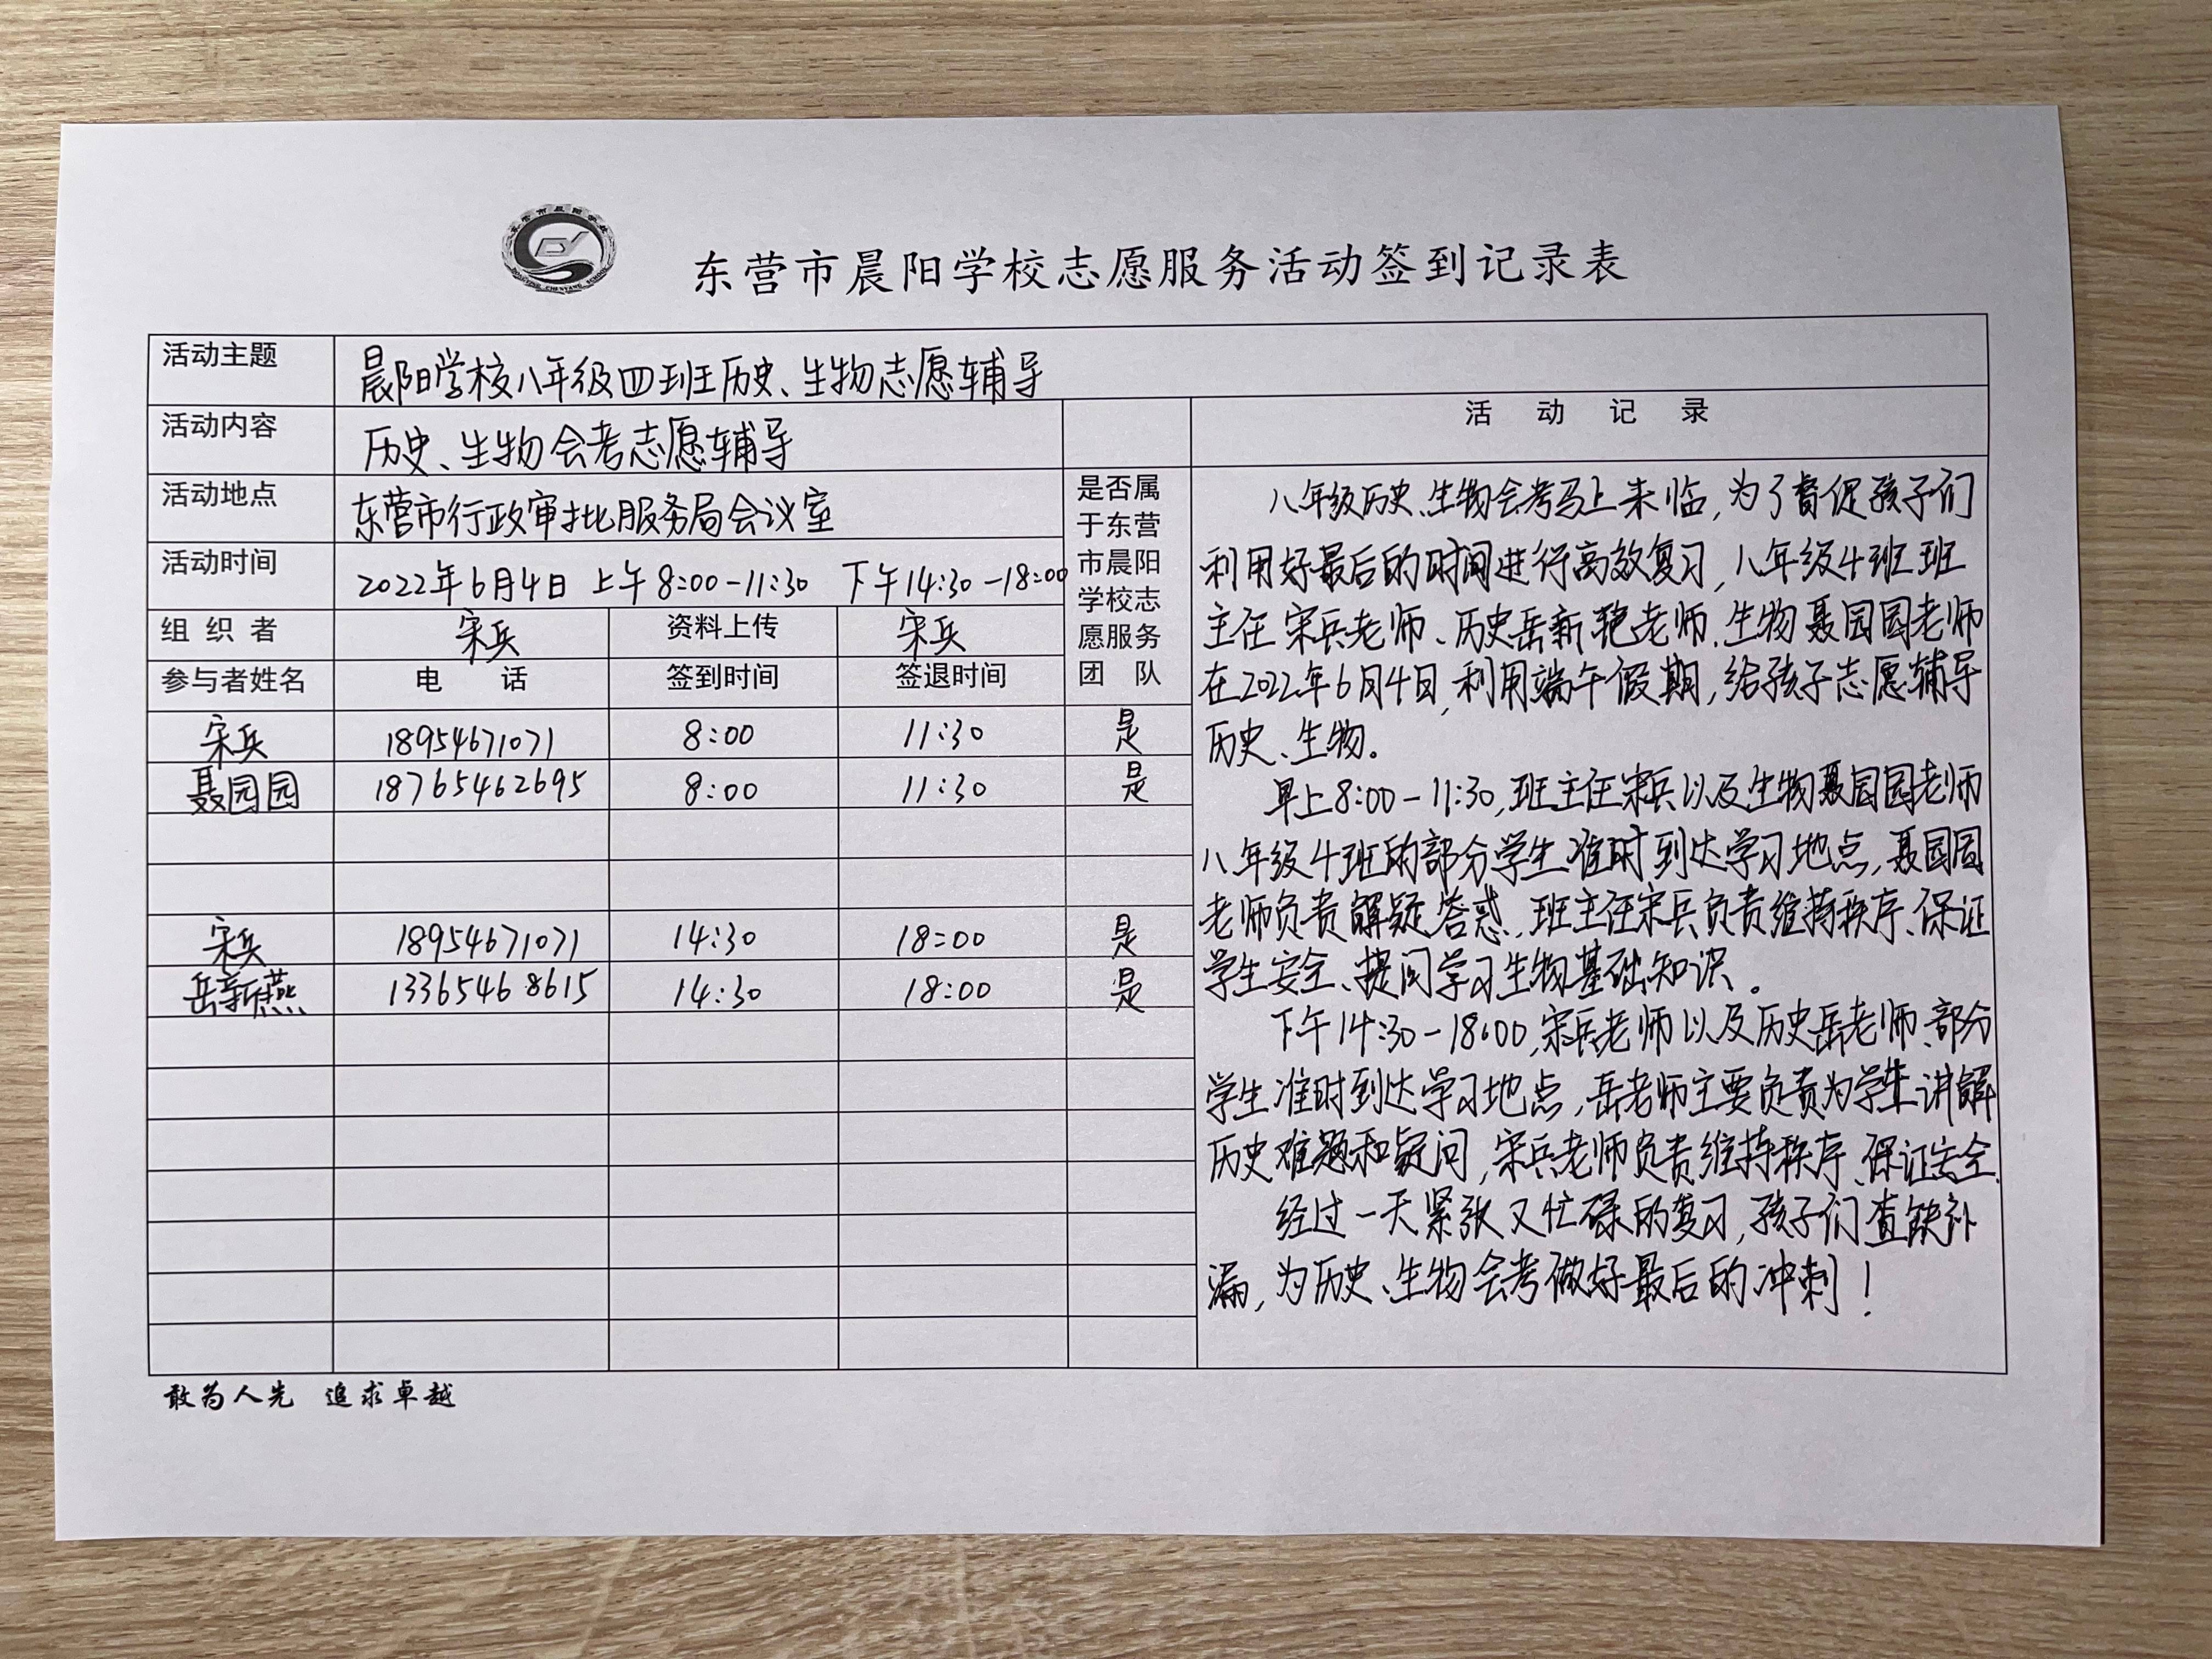 东营市晨阳学校志愿服务活动签到记录表
活动主题 晨阳学校八年级四班历史、生物志愿辅导
活动内容 历史、生物会考志愿辅导
活动地点 东营市行政审批服务局会议室
活动时间 2022年6月4日 上午8:00-11:30 下午14:30-18:00
组织者 宋兵 资料上传 宋兵
参与者姓名 电话 签到时间 签退时间
是否属
于东营
市晨阳
学校志
愿服务
团队
宋兵 18954671071 8:00 11:30 是
聂园园 18765462695 8:00 11:30 是
宋兵 18954671071 14:30 18:00 是
岳新燕 13365468615 14:30 18:00 是
活动记录
八年级历史、生物会考马上来临,为了督促孩子们
利用好最后的时间进行高效复习,八年级4班班
主任宋兵老师、历史岳新艳老师、生物聂园园老师
在2022年6月4日,利用端午假期,给孩子志愿辅导
历史、生物。
早上8:00-11:30,班主任宋兵以及生物聂园园老师
八年级4班的部分学生准时到达学习地点,聂园园
老师负责解疑答惑,班主任宋兵负责维持秩序、保证
学生安全、提问学习生物基础知识。
下午14:30-18:00,宋兵老师以及历史岳老师、部分
学生准时到达学习地点,岳老师主要负责为学生讲解
历史难题和疑问,宋兵老师负责维持秩序、保证安全.
经过一天紧张又忙碌的复习,孩子们查缺补
漏,为历史、生物会考做好最后的冲刺!
敢为人先 追求卓越